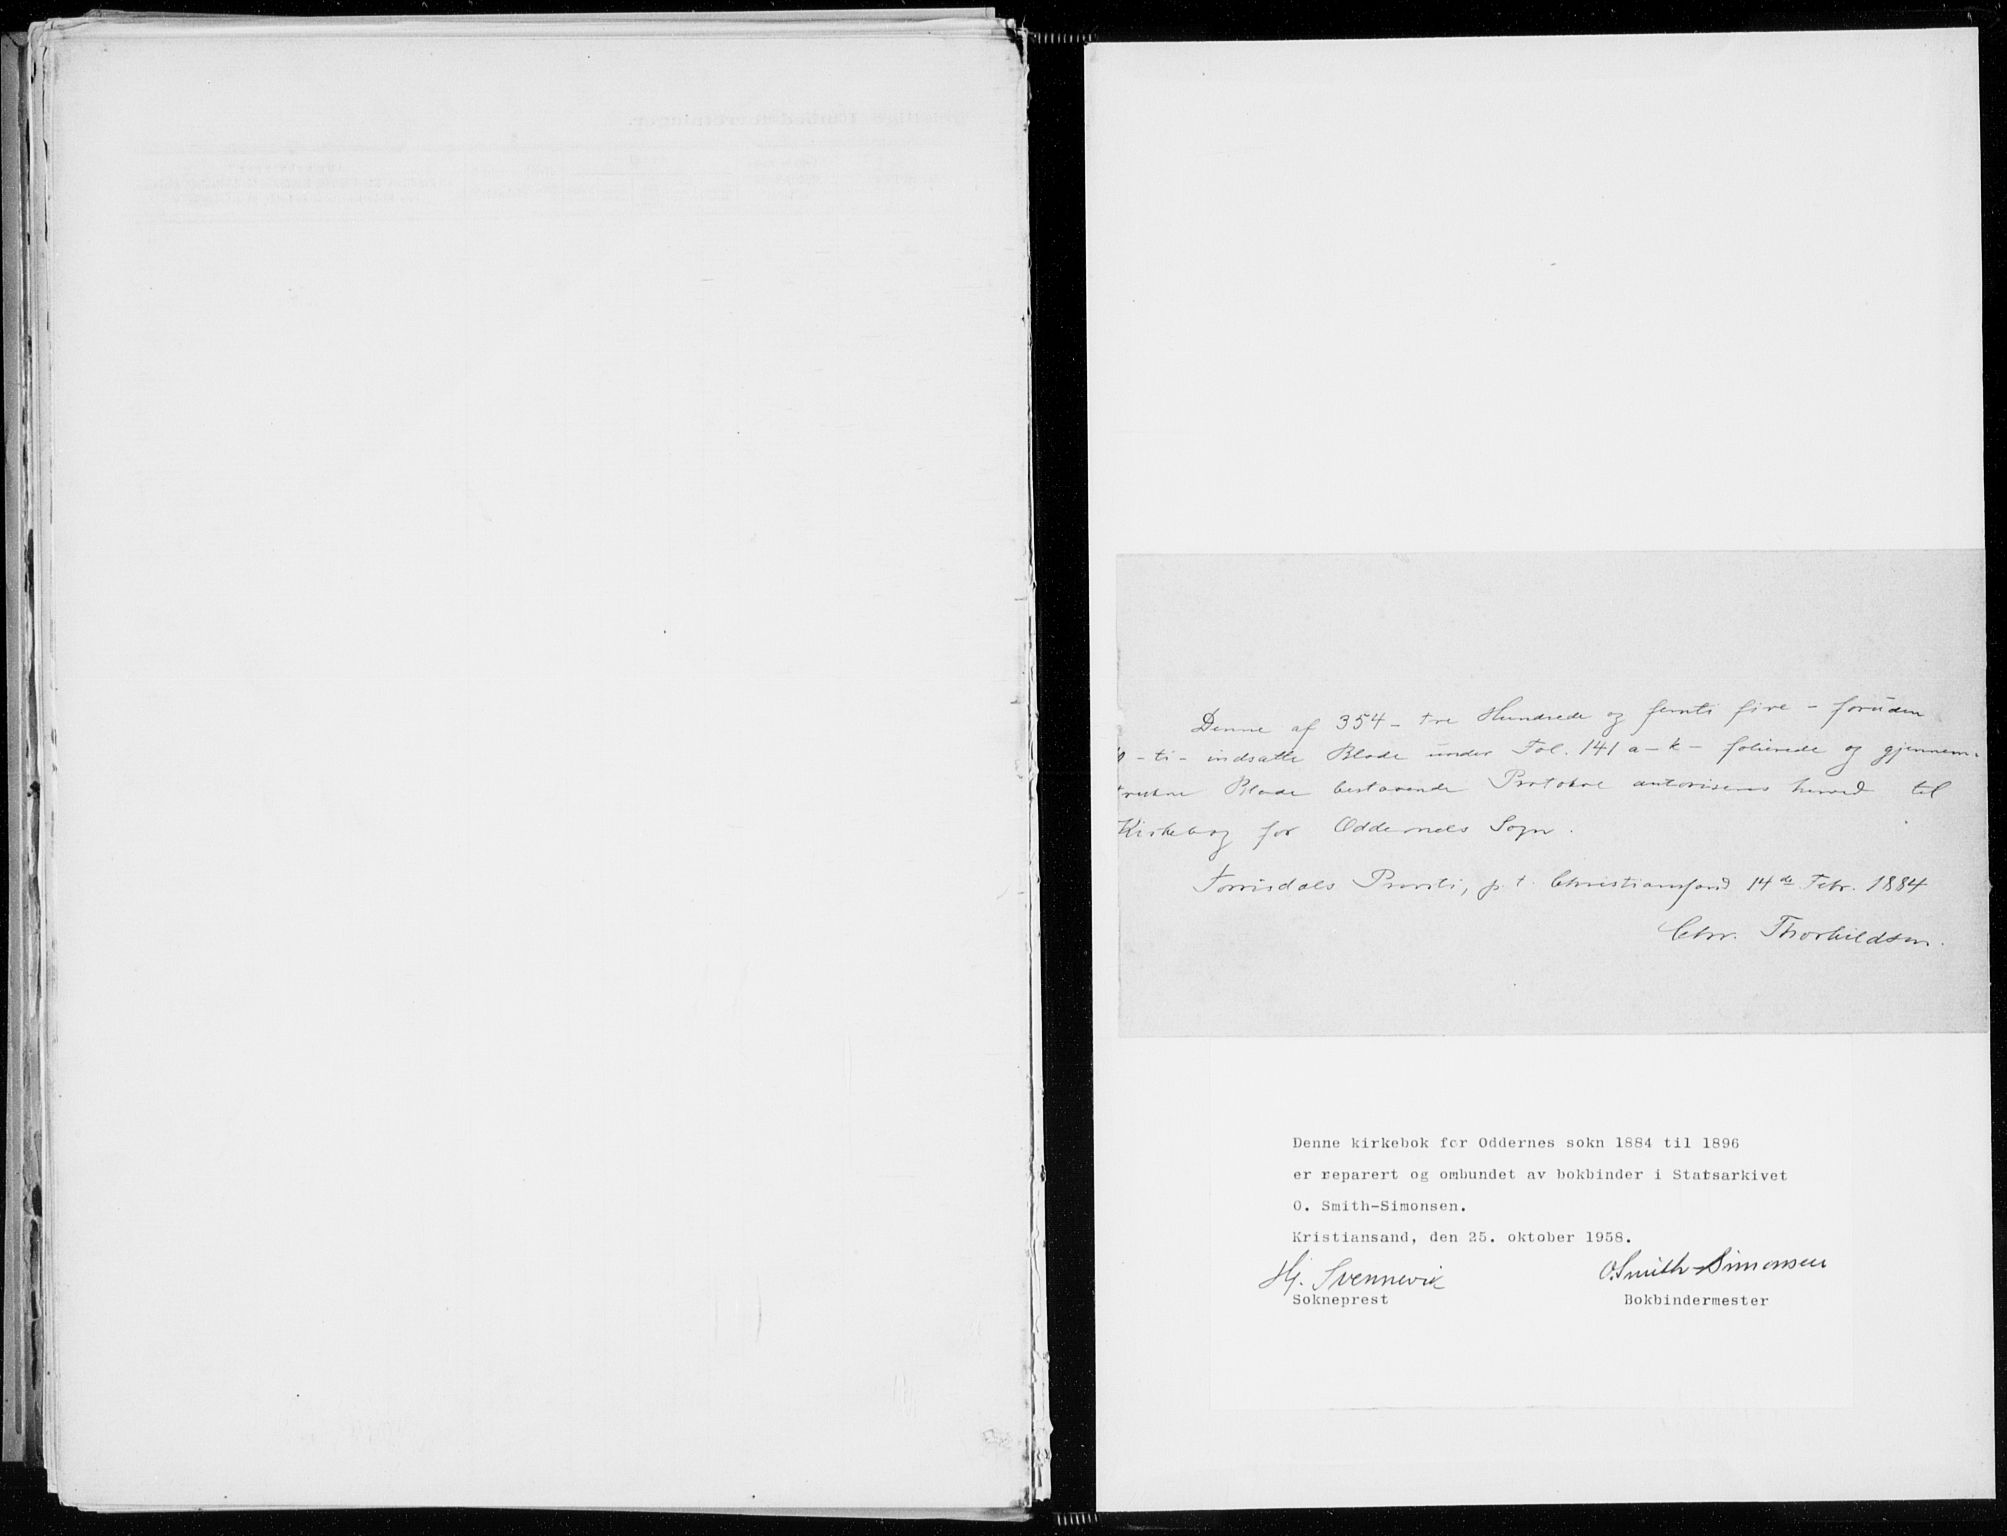 Denne af 354 - tre Hundrede og femti fire - foruden
- ti - indsatte Blade under Fol. 141 a - k - folierede og gjennem-
trukne Blade bestaaende Protokol autoriseres herved til
Kirkebog for Oddernes Sogn.
Torrisdals Provsti, p. t. Christianssand 14de Febr. 1884
Chr. Thorkildsen.
Denne kirkebok for Oddernes sokn 1884 til 1896
er reparert og ombundet av bokbinder i Statsarkivet
O. Smith-Simonsen.
Kristiansand, den 25. oktober 1958.
Hj. Svennevik O. Smith-Simonsen
Sokneprest Bokbindermester